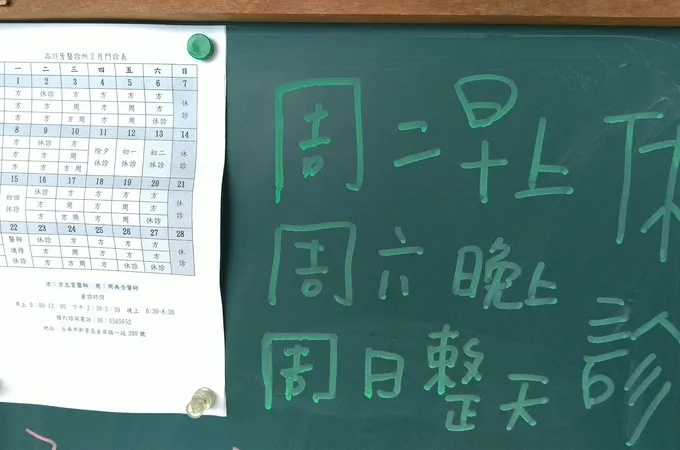 品川牙醫診所2月門診表
一 二 三 四 五 六 日
1 2 3 4 5 6 7
方 休診 方 方 方 方 休
方 方 方 周 周 方 診
方 方 方 周 方 周 休診
8 9 10 11 12 13 14
方 休診 方 除夕 初一 初二 休
方 方 周 休診 休診 休診 診
方 方 方 周
15 16 17 18 19 20 21
初四 休診 方 方 方 方 休
休診 方 周 周 周 方 診
方 方 周 方 周 休診
22 23 24 25 26 27 28
醫師 休診 方 方 方 方 休
進修 方 周 周 周 方 診
休診 方 方 周 方 休診 休診
方:方志宣醫師 周:周典岳醫師
看診時間
早上9:00-12:00 下午2:30-5:30 晚上 6:30-8:30
預約諮詢電話:06:6565652
地址:台南市新營區金華路一段390號
周二早上 休
周六晚上
周日整天 診